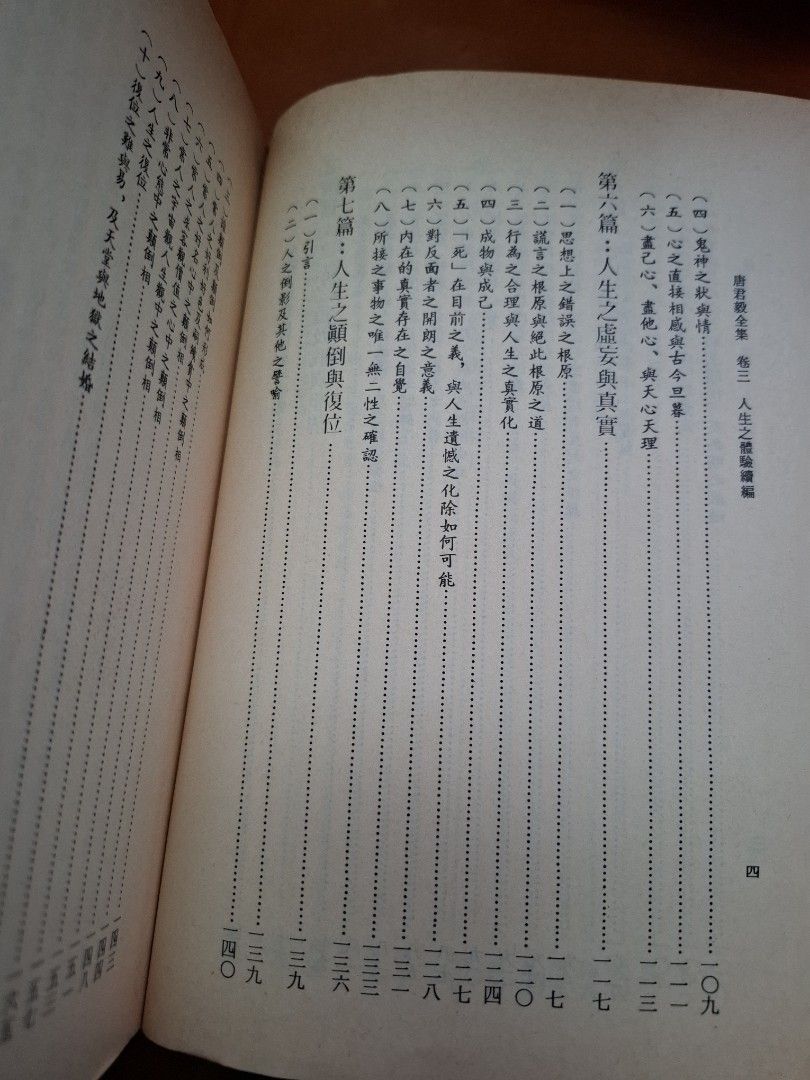 唐君毅全集 卷三 人生之體驗續編
四
（四）鬼神之狀與情 一〇九
（五）心之直接相感與古今旦暮 一一一
（六）盡己心、盡他心、與天心天理 一一三
第六篇：人生之虛妄與真實 一一七
（一）思想上之錯誤之根原 一一七
（二）謊言之根原與絕此根原之道 一二〇
（三）行為之合理與人生之真實化 一二四
（四）成物與成己 一二七
（五）「死」在目前之義，與人生遺憾之化除如何可能 一二八
（六）對反面者之開朗之意義 一三一
（七）內在的真實存在之自覺 一三三
（八）所接之事物之唯一無二性之確認 一三六
第七篇：人生之顚倒與復位 一三九
（一）引言 一三九
（二）人之倒影及其他之譬喻 一四〇
（八）非常心態中之顚倒相
（九）人生之復位
（十）復位之難與易，及天堂與地獄之結婚